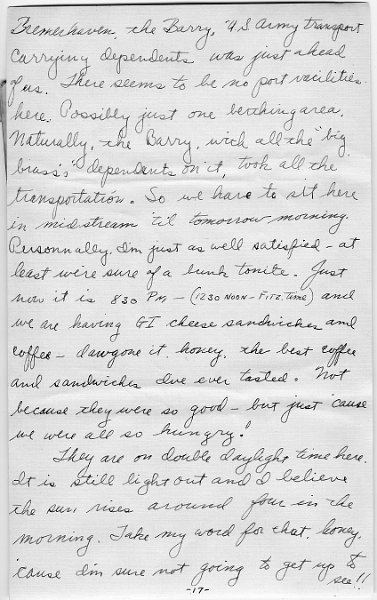 Bremerhaven, the Barry, "U.S Army transport
carrying dependents was just ahead
of us. There seems to be no port vacilities
here. Possibly just one berthing area.
Naturally, the Barry, with all the "big
brass's" dependents on it, took all the
transportation. So we have to sit here
in midstream 'til tomorrow morning.
Personnally, I'm just as well satisfied - at
least we're sure of a bunk tonite. Just
now it is 830 PM - (1230 NOON - FITZ. TIME) and
we are having GI cheese sandwiches and
coffee - dawgone it, honey, the best coffee
and sandwiches I've ever tasted. Not
because they were so good - but just 'cause
we were all so hungry!
They are on double daylight time here.
It is still light out and I believe
the sun rises around four in the
morning. Take my word for that, honey,
'cause I'm sure not going to get up to
see!!
-17-